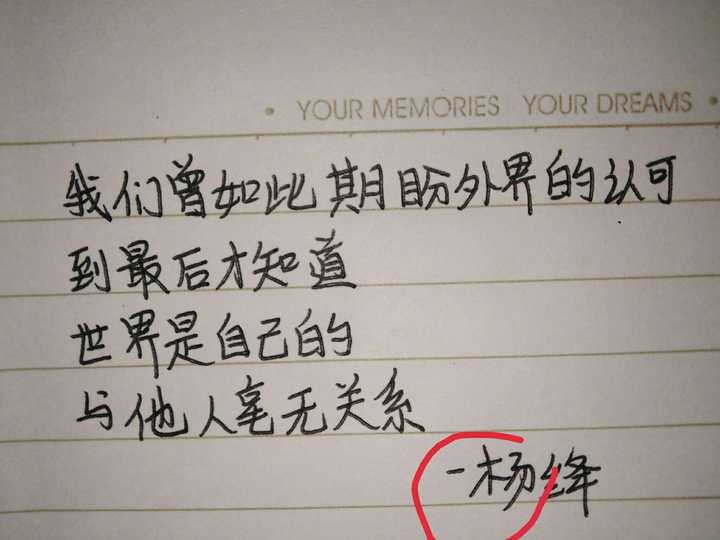 • YOUR MEMORIES YOUR DREAMS •
我们曾如此期盼外界的认可
到最后才知道
世界是自己的
与他人毫无关系
-杨绛